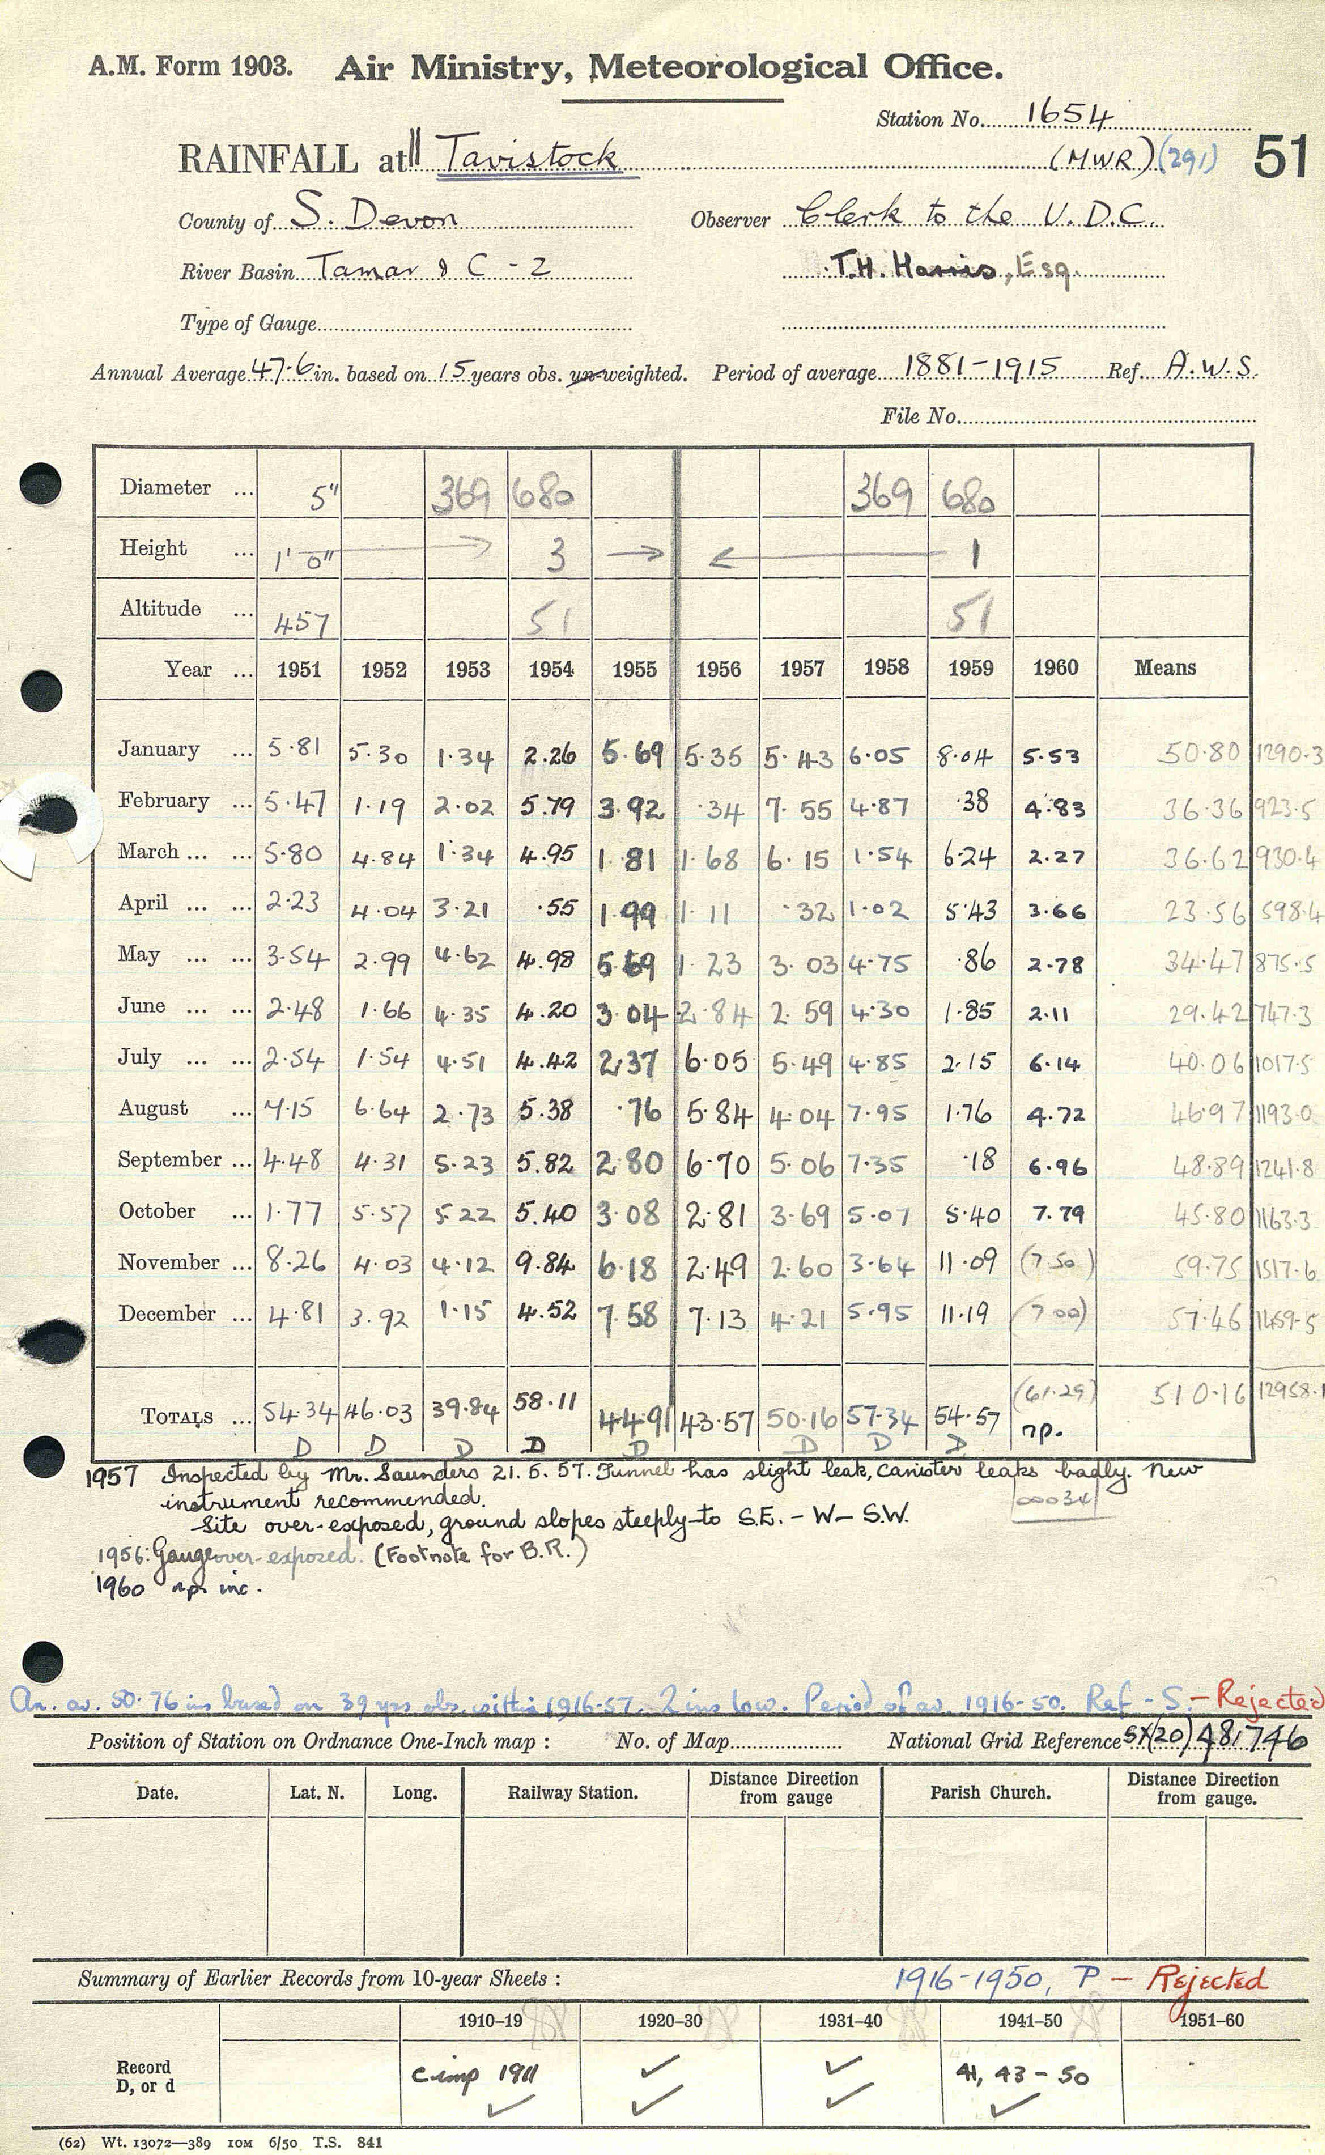 A.M. Form 1903. Air Ministry, Meteorological Office.
Station No. 1654
RAINFALL at Tavistock (MWR) (291) 51
County of S. Devon Observer Clerk to the U.D.C.
River Basin Tamar & C - 2 T.H. Harris, Esq.
Type of Gauge
Annual Average 47.6 in. based on 15 years obs. un-weighted. Period of average 1881-1915 Ref. A.W.S.
File No.
Diameter ... 5" 369 680 369 680
Height ... 1' 0" 3 1
Altitude ... 457 51 51
Year ... 1951 1952 1953 1954 1955 1956 1957 1958 1959 1960 Means
January ... 5.81 5.30 1.34 2.26 5.69 5.35 5.43 6.05 8.04 5.53 50.80 1290.3
February ... 5.47 1.19 2.02 5.79 3.92 .34 7.55 4.87 .38 4.83 36.36 923.5
March ... ... 5.80 4.84 1.34 4.95 1.81 1.68 6.15 1.54 6.24 2.27 36.62 930.4
April ... ... 2.23 4.04 3.21 .55 1.99 1.11 .32 1.02 5.43 3.66 23.56 598.4
May ... ... 3.54 2.99 4.62 4.98 5.69 1.23 3.03 4.75 .86 2.78 34.47 875.5
June ... ... 2.48 1.66 4.35 4.20 3.04 2.84 2.59 4.30 1.85 2.11 29.42 747.3
July ... ... 2.54 1.54 4.51 4.42 2.37 6.05 5.49 4.85 2.15 6.14 40.06 1017.5
August ... 7.15 6.64 2.73 5.38 .76 5.84 4.04 7.95 1.76 4.72 46.97 1193.0
September ... 4.48 4.31 5.23 5.82 2.80 6.70 5.06 7.35 .18 6.96 48.89 1241.8
October ... 1.77 5.57 5.22 5.40 3.08 2.81 3.69 5.07 5.40 7.79 45.80 1163.3
November ... 8.26 4.03 4.12 9.84 6.18 2.49 2.60 3.64 11.09 (7.50) 59.75 1517.6
December ... 4.81 3.92 1.15 4.52 7.58 7.13 4.21 5.95 11.19 (7.00) 57.46 1459.5
TOTALS ... 54.34 46.03 39.84 58.11 44.91 43.57 50.16 57.34 54.57 (61.29) np. 510.16 12958.1
D D D D D D D D
1957 Inspected by Mr. Saunders 21.5.57. Funnel has slight leak, canister leaks badly. New
instrument recommended. 00034
Site over-exposed, ground slopes steeply to S.E. - W - S.W.
1956. Gauge over-exposed. (Footnote for B.R.)
1960 np. inc.
An. av. 50.76 ins based on 39 yrs obs. within 1916-57. 2 ins low. Period of av. 1916-50. Ref - S. - Rejected
Position of Station on Ordnance One-Inch map : No. of Map National Grid Reference SX(20) 481746
Date. Lat. N. Long. Railway Station. Distance Direction from gauge Parish Church. Distance Direction from gauge.
Summary of Earlier Records from 10-year Sheets : 1916-1950, P - Rejected
1910-19 1920-30 1931-40 1941-50 1951-60
Record D, or d c imp 1911 ✓ ✓ 41, 43 - 50
✓ ✓ ✓ ✓
(62) Wt. 13072-389 IOM 6/50 T.S. 841